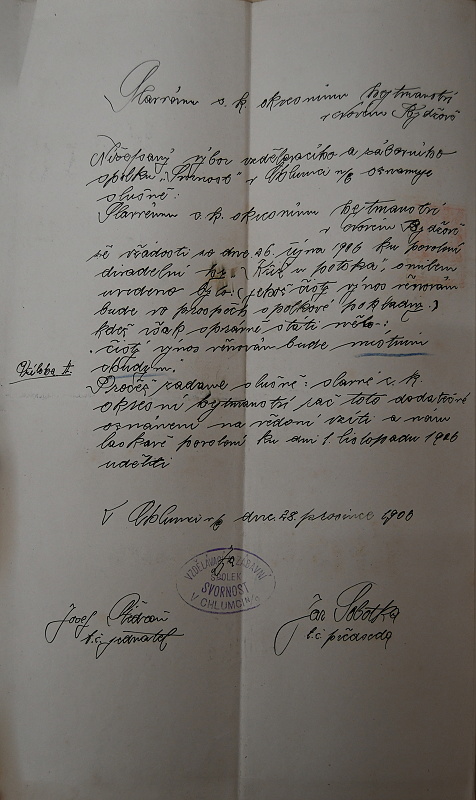 Slavnému c. k. okresnímu hejtmanství
v Novém Bydžově
Nížepsaný výbor vzdělávacího a zábavního
spolku „Svornost“ v Chlumci n/C oznamuje
slušně:
Slavnému c. k. okresnímu hejtmanství
v Novém Bydžově
že v žádosti ze dne 26. října 1906 ku povolení
divadelní hry „Kříž u potoka“, omylem
uvedeno bylo: (jehož čistý výnos věnován
bude ve prospěch spolkové pokladny.)
kdež však správně státi mělo:
čistý výnos věnován bude místním
chudým.
Příloha
Pročež žádáme slušně: slavné c. k.
okresní hejtmanství rač toto dodatečné
oznámení na vědomí vzíti a nám
laskavě povolení ku dni 1. listopadu 1906
uděliti
V Chlumci n/C dne 28. 1906
VZDĚLÁVACÍ A ZÁBAVNÍ
SPOLEK
SVORNOST
V CHLUMCI N/C
Josef
t. č. jednatel
Jar. Sobotka
t. č. předseda